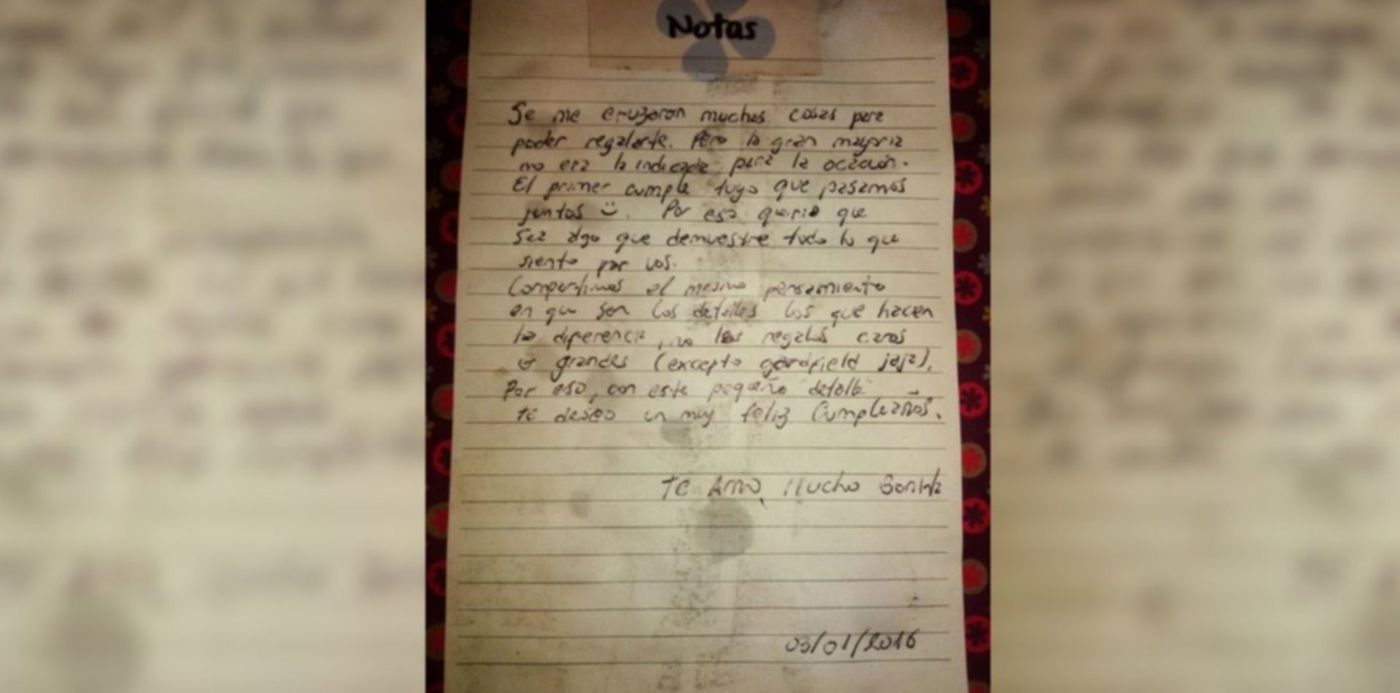 Notas
Se me cruzaron muchas cosas para
poder regalarte. Pero la gran mayoria
no era la indicada para la ocación.
El primer cumple tuyo que pasamos
juntos ü. Por eso queria que
sea algo que demuestre todo lo que
siento por vos.
Compartimos el mismo pensamiento
en que son los detalles los que hacen
la diferencia, no los regalos caros
o grandes (excepto gardfield jaja).
Por eso, con este pequeño "detalle"
te deseo un muy feliz Cumpleaños.
Te Amo Mucho Bonita
03/01/2016